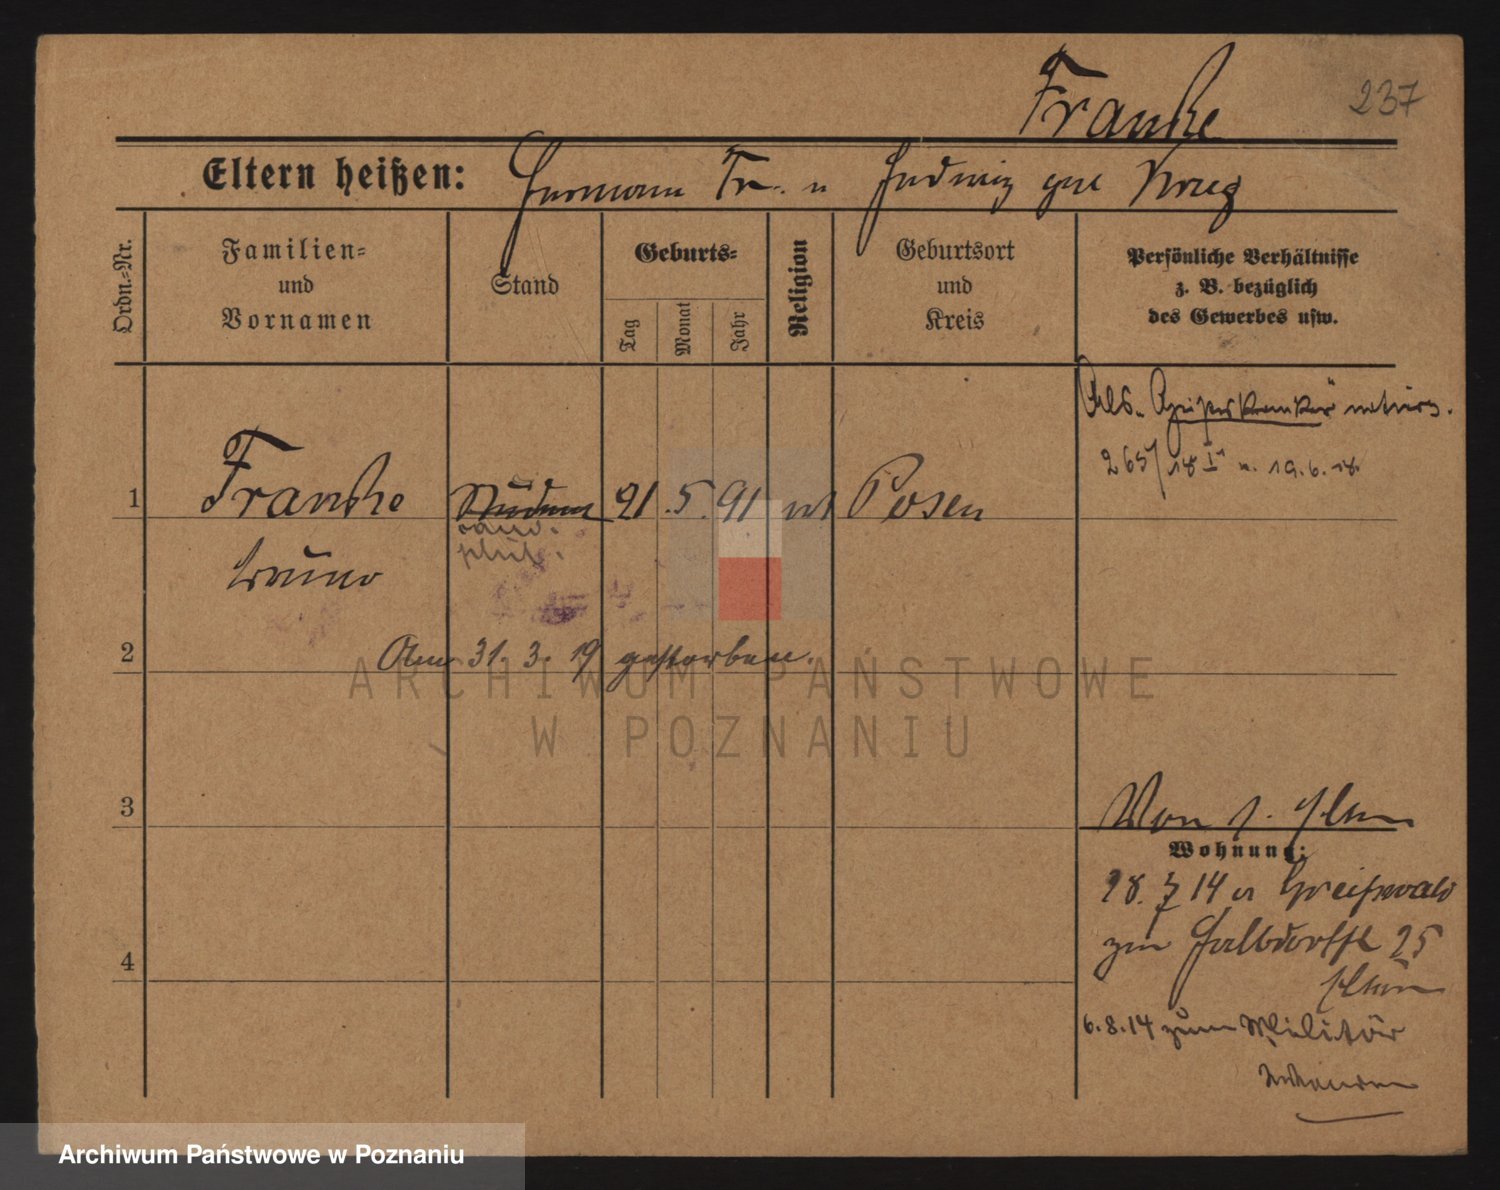 Franke 237
Eltern heißen: Hermann Fr. u Hedwig geb Krug
Ordn.-Nr.
Familien-
und
Vornamen
Stand
Geburts-
Tag
Monat
Jahr
Religion
Geburtsort
und
Kreis
Persönliche Verhältnisse
z. B. bezüglich
des Gewerbes usw.
Als "Geisteskranker" notiert.
265/18 I u. 19.6.18.
1 Franke Student 21. 5. 91 Posen
cand.
phil.
Bruno
2 Am 31. 3. 19 gestorben.
3
Von s. Eltern
Wohnung:
28. 7 14 a Greifswald
zur 25
Eltern
4
6.8.14 zum Militär
ARCHIWUM PAŃSTWOWE
W POZNANIU
Archiwum Państwowe w Poznaniu